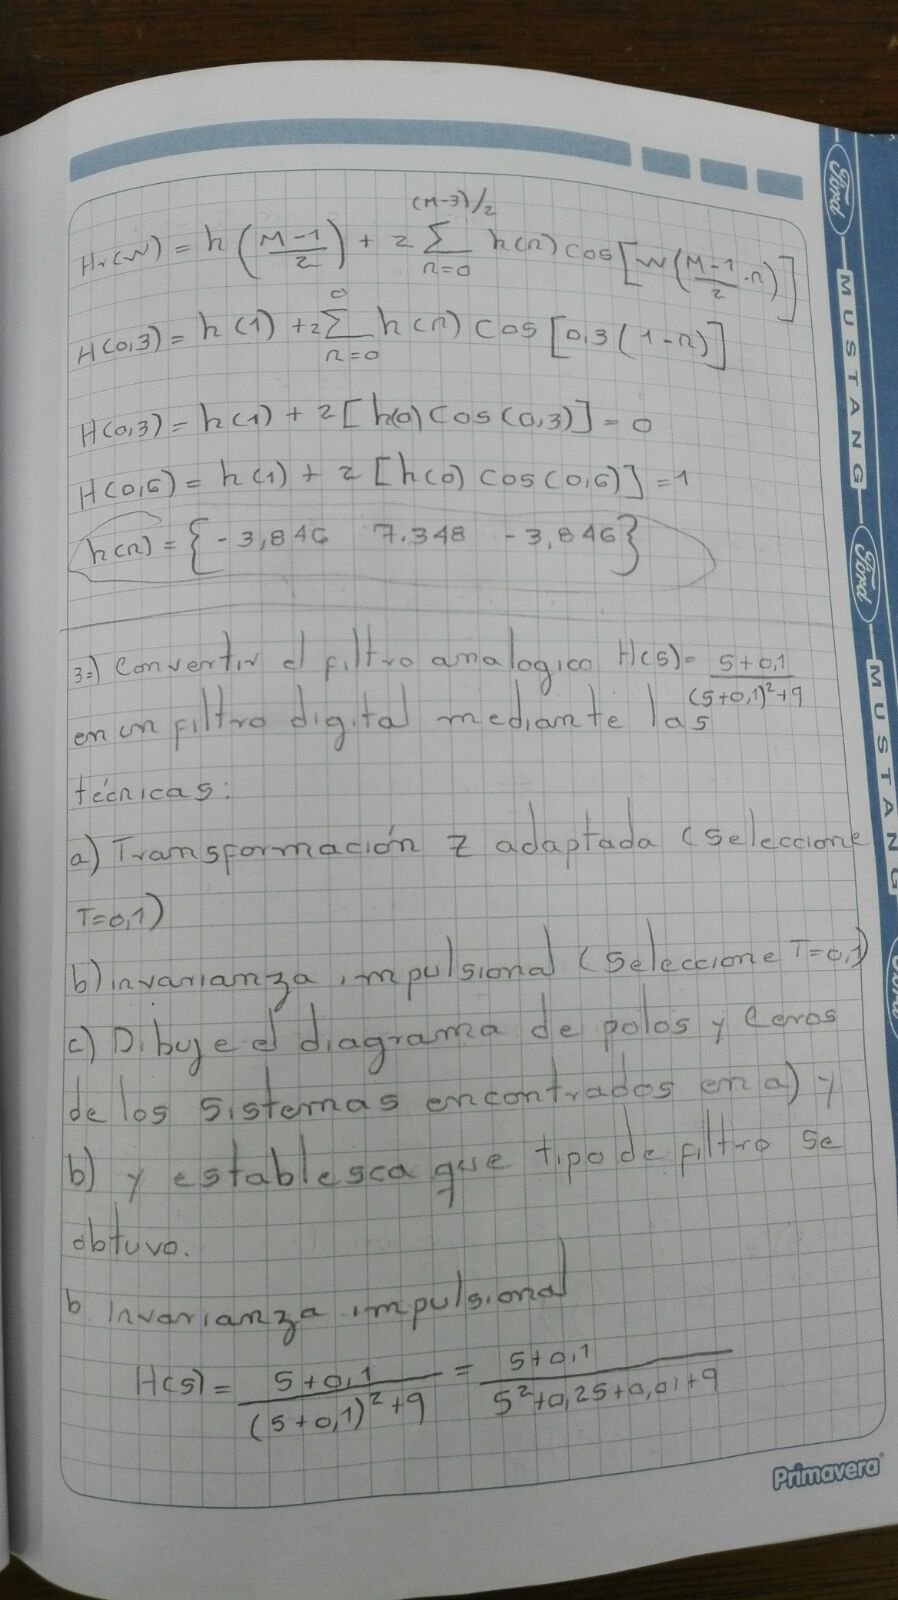 Hr(W) = h((M-1)/2) + 2 Σ_{n=0}^{(M-3)/2} h(n) cos[W((M-1)/2 - n)]
H(0,3) = h(1) + 2 Σ_{n=0}^{0} h(n) cos[0,3(1-n)]
H(0,3) = h(1) + 2[h(0) cos(0,3)] = 0
H(0,6) = h(1) + 2[h(0) cos(0,6)] = 1
h(n) = {-3,846 7.348 -3,846}
3.) Convertir el filtro analogico H(s) = (s+0,1)/((s+0,1)²+9)
en un filtro digital mediante las
técnicas:
a) Transformación Z adaptada (Seleccione
T=0,1)
b) invarianza impulsional (Seleccione T=0,1)
c) Dibuje el diagrama de polos y Ceros
de los Sistemas encontrados en a) y
b) y establesca que tipo de filtro se
obtuvo.
b. Invarianza impulsional
H(s) = (s+0,1)/((s+0,1)²+9) = (s+0,1)/(s²+0,2s+0,01+9)
Primavera
Ford MUSTANG Ford MUSTANG Ford